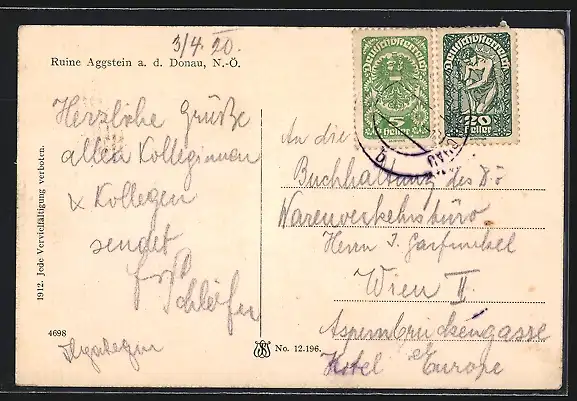 3/4. 20.
Ruine Aggstein a. d. Donau, N.-Ö.
Herzliche Grüße
allen Kolleginnen
& Kollegen
sendet
Schleifer
4698
1912. Jede Vervielfältigung verboten.
No. 12.196.
Deutschösterreich
5
Heller
Deutschösterreich
20
Heller
An die
Buchhaltung des D.ö
Warenverkehrsbüro
Herrn J. Garfunkel
Wien II
Aspernbrückengasse
Hotel Europe